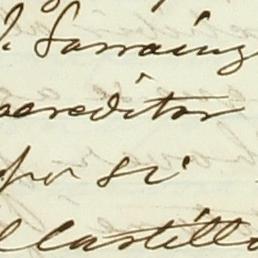 J. Larrainz
acreditar
por si
Castillo